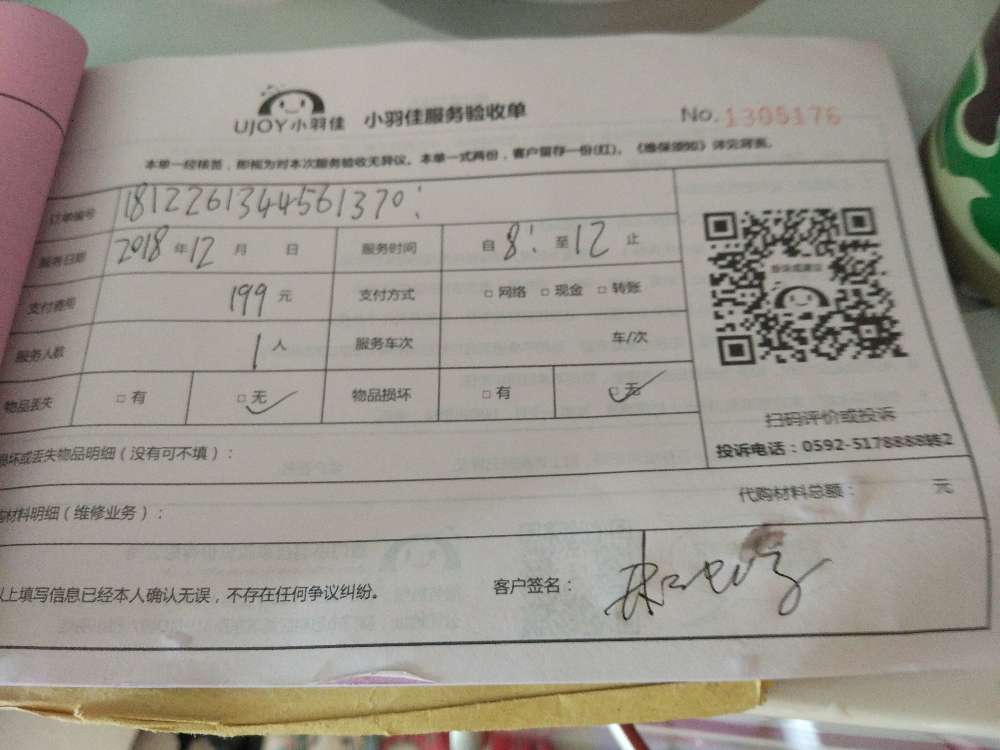 UJOY小羽佳 小羽佳服务验收单 No.1305176
本单一经核签，即视为对本次服务验收无异议。本单一式两份，客户留存一份(红)。《维保须知》详见背面。
订单编号 1812261344561370
服务日期 2018年12月 日 服务时间 自8:至12止
支付费用 199元 支付方式 □网络 □现金 □转账
服务人数 1人 服务车次 车/次
物品丢失 □有 □无✓ 物品损坏 □有 □无✓
扫码评价或投诉
投诉电话：0592-5178888转2
损坏或丢失物品明细（没有可不填）：
代购材料总额： 元
购材料明细（维修业务）：
以上填写信息已经本人确认无误，不存在任何争议纠纷。 客户签名：